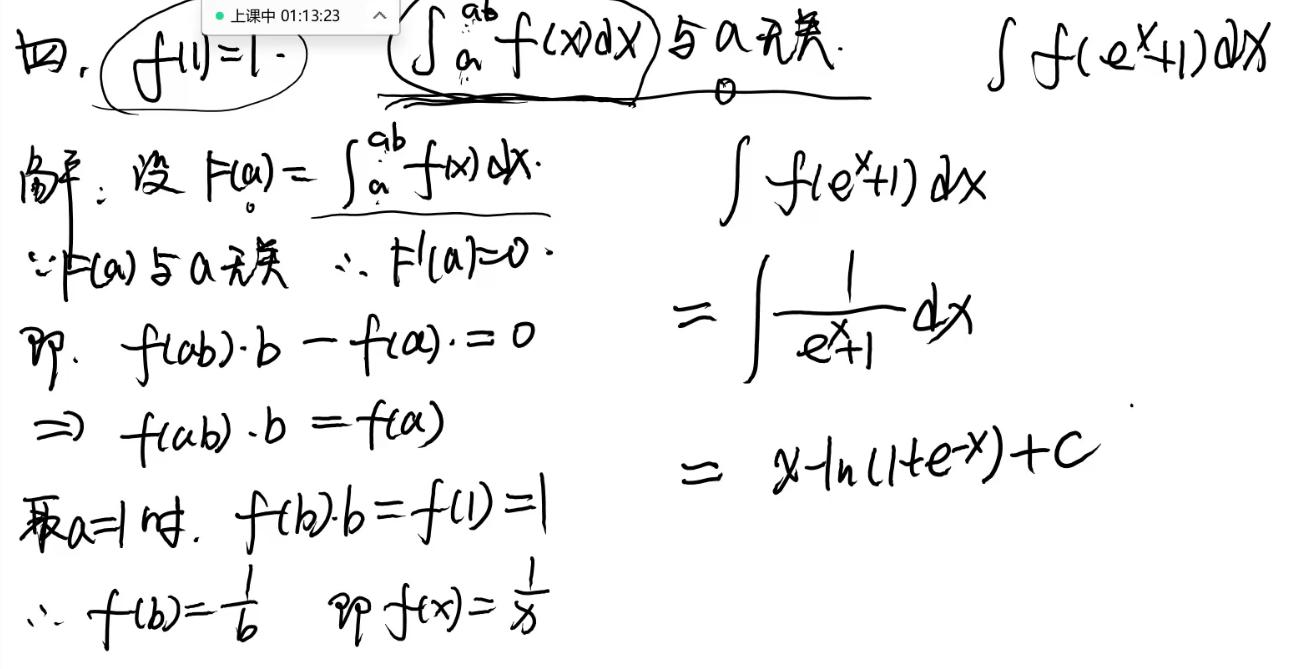 上课中 01:13:23
四. f(1)=1. ∫_a^{ab} f(x)dx 与 a 无关. ∫ f(e^x+1)dx
解: 设 F(a) = ∫_a^{ab} f(x)dx.
∵ F(a) 与 a 无关 ∴ F'(a)=0.
即. f(ab)·b - f(a)·= 0
⇒ f(ab)·b = f(a)
取 a=1 时. f(b)·b = f(1) = 1
∴ f(b) = 1/b 即 f(x) = 1/x
∫ f(e^x+1)dx
= ∫ 1/(e^x+1) dx
= x-ln(1+e^-x)+C